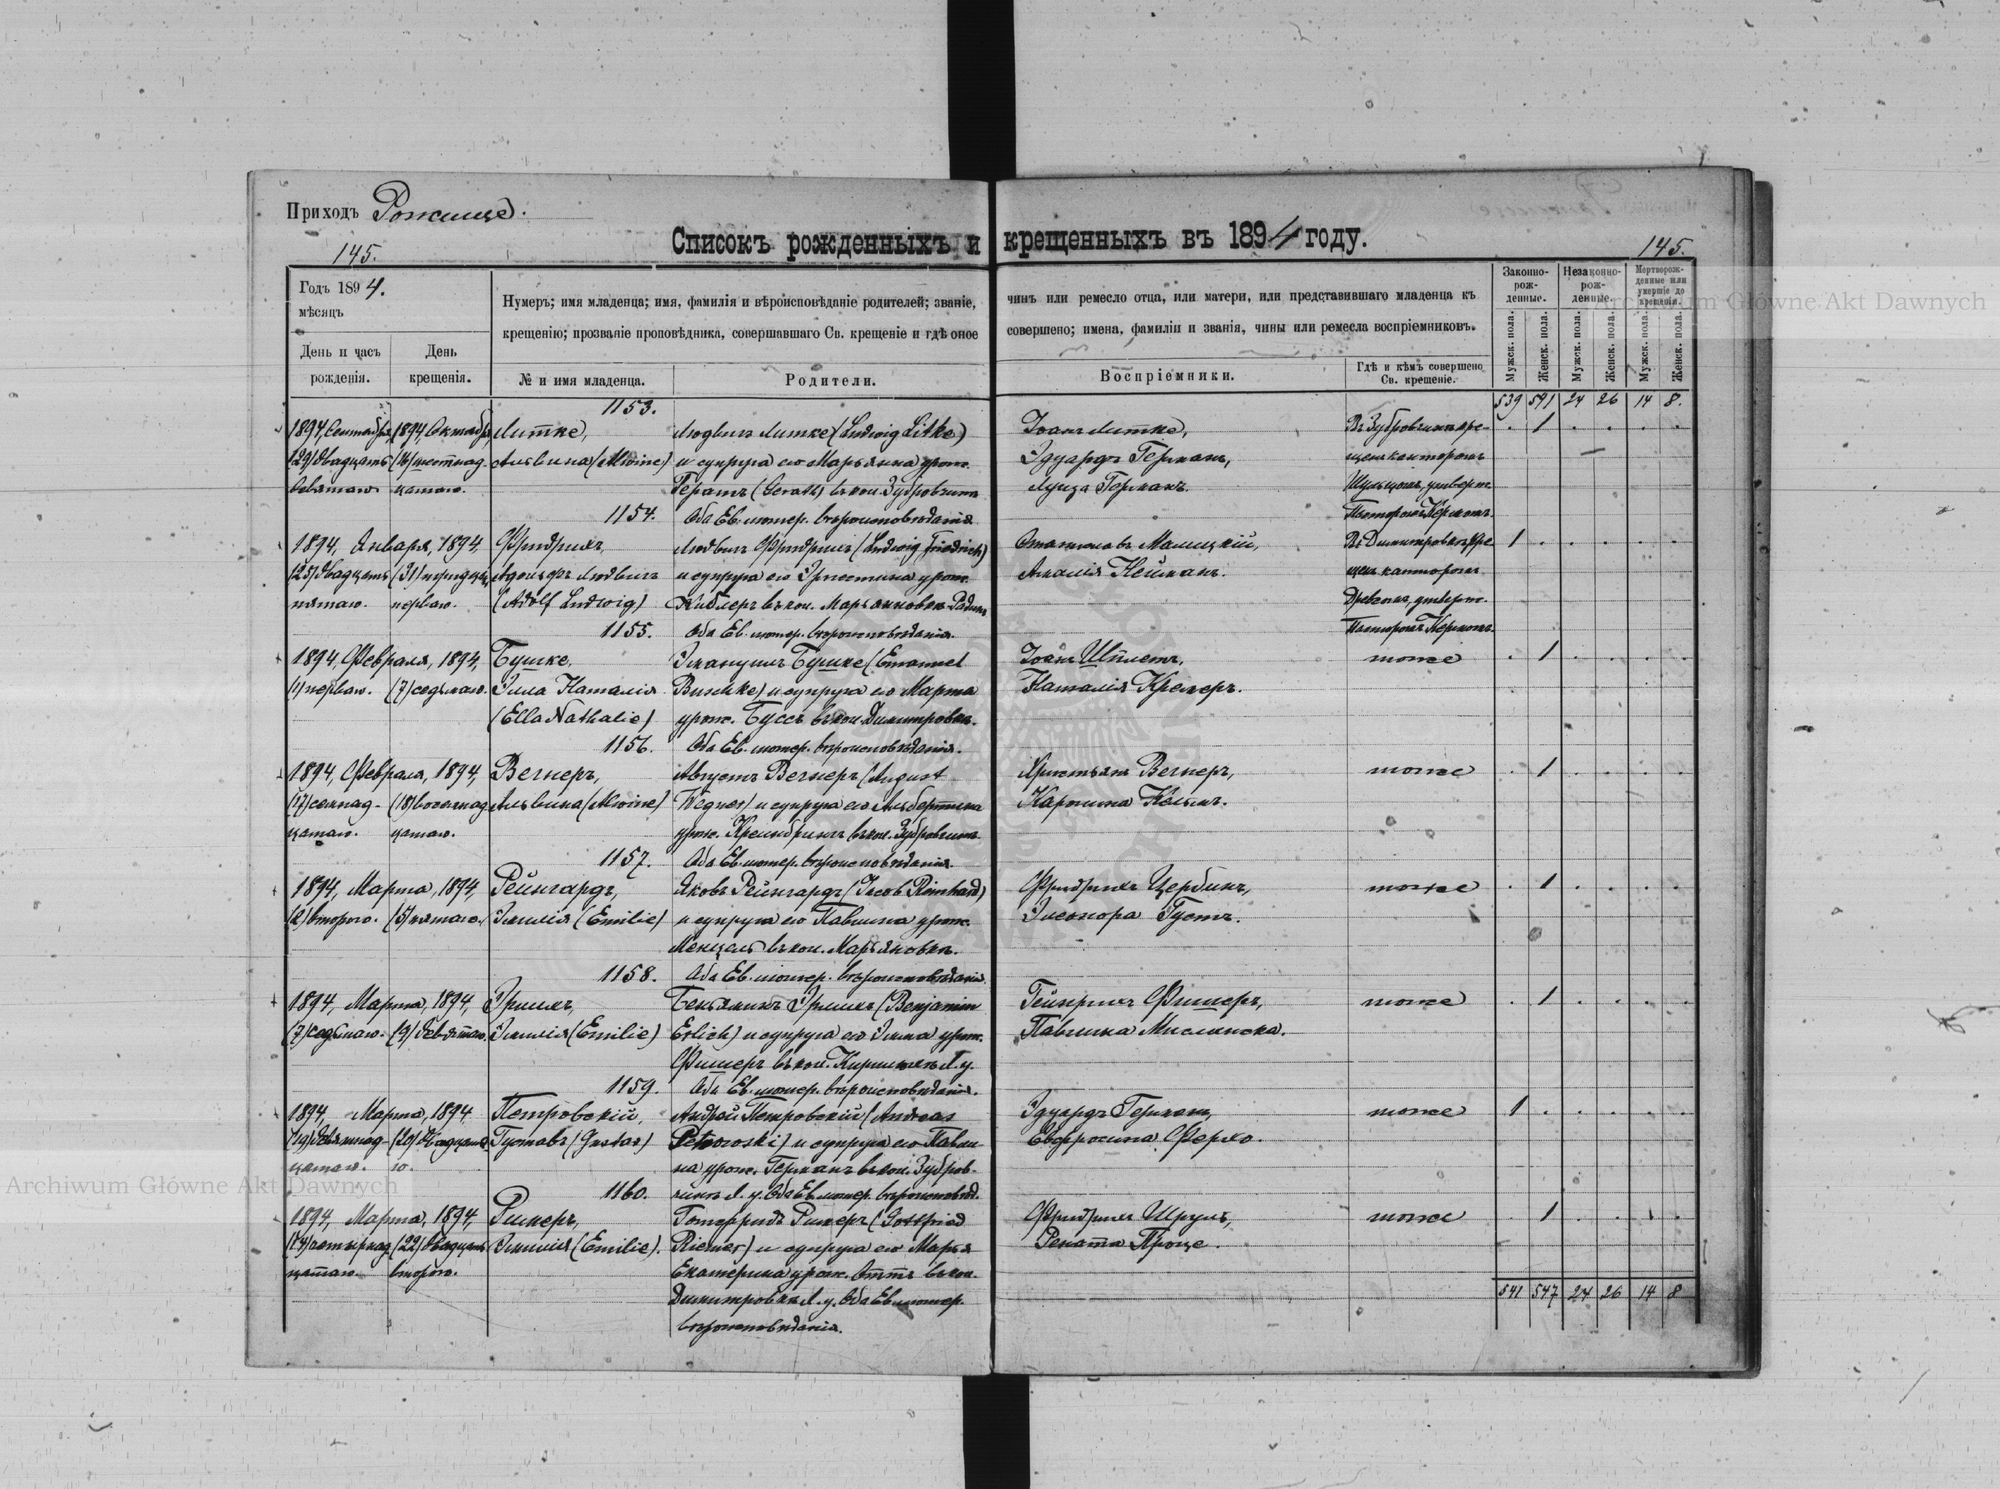 Приходъ Рожище.
145.
Списокъ рожденныхъ и крещенныхъ въ 1894 году.
145.
Годъ 1894.
мѣсяцъ
День и часъ рожденія.
День крещенія.
Нумеръ; имя младенца; имя, фамилія и вѣроисповѣданіе родителей; званіе, чинъ или ремесло отца, или матери, или представившаго младенца къ
крещенію; прозваніе проповѣдника, совершавшаго Св. крещеніе и гдѣ оное совершено; имена, фамиліи и званія, чины или ремесла воспріемниковъ.
№ и имя младенца.
Родители.
Воспріемники.
Гдѣ и кѣмъ совершено Св. крещеніе.
Законно-рож-денные.
Незаконно-рож-денные.
Мертворож-денные или умершіе до крещенія.
Мужск. пола.
Женск. пола.
Мужск. пола.
Женск. пола.
Мужск. пола.
Женск. пола.
539 541 24 26 14 8.
1153.
1894, Сентября 1894, Октября Литке, Людвигъ Литке (Ludwig Litke) Іоанъ Литке, Въ Зубровщинѣ кре- . 1 . . . .
(29) двадцать (16) шестнад- Альвина (Alwine) и супруга его Марьянна урож. Эдуардъ Германъ, щенъ канторомъ
девятаго цатаго. Гератъ (Gerath) въ кол. Зубровщина Луиза Германъ. Шульцомъ, утверж.
1154. Оба Ев. лютер. вѣроисповѣданія. Пасторомъ Керномъ.
1894, Января, 1894, Фридрихъ, Людвигъ Фридрихъ (Ludwig Friedrich) Станиславъ Малицкій, Въ Димитровкѣ кре 1 . . . . .
(25) двадцать (31) тридцать Адольфъ Людвигъ и супруга его Эрнестина урож. Амалія Нейманъ. щенъ канторомъ
пятаго. перваго. (Adolf Ludwig) въ кол. Марьяновка
1155. Оба Ев. лютер. вѣроисповѣданія. Пасторомъ Керномъ.
1894, Февраля, 1894, Бушке, Эмануилъ Бушке (Emanuel Іоанъ тоже . 1 . . . .
(1) перваго. (7) седьмаго. Элла Наталія Buschke) и супруга его Марта Наталія Кремеръ.
(Ella Nathalie) урож. Буссъ въ кол. Димитровка.
1156. Оба Ев. лютер. вѣроисповѣданія.
1894, Февраля, 1894, Вегнеръ, Августъ Вегнеръ (August Христьянъ Вегнеръ, тоже . 1 . . . .
(17) семнад- (18) восемнад Альвина (Alwine) Wegner) и супруга его Альбертина Каролина
цатаго. цатаго. урож. въ кол. Зубровщина
1157. Оба Ев. лютер. вѣроисповѣданія.
1894, Марта, 1894, Рейнгардъ, Яковъ Рейнгардъ (Jacob Reinhard) Фридрихъ Цербинъ, тоже . 1 . . . .
(2) втораго. (5) пятаго. Эмилія (Emilie) и супруга его Павлина урож. Элеонора Густъ.
Менцель въ кол. Марьяновка.
1158. Оба Ев. лютер. вѣроисповѣданія.
1894, Марта, 1894, Эрлихъ, Беньяминъ Эрлихъ (Benjamin Гейнрихъ Фишеръ, тоже . 1 . . . .
(7) седьмаго. (9) девятаго. Эмилія (Emilie) Erlich) и супруга его Эмма урож. Павлина Мислинска.
Фишеръ въ кол. Л. у.
1159. Оба Ев. лютер. вѣроисповѣданія.
1894, Марта, 1894, Петровскій, Андрей Петровскій (Andreas Эдуардъ Германъ, тоже 1 . . . . .
(19) девятнад- (20) двадцата- Густавъ (Gustav) Petrowski) и супруга его Павли- Евфросина Ферхо.
цатаго. го. на урож. Германъ въ кол. Зубров-
1160. Л. у. Оба Ев. лютер. вѣроисповѣд.
1894, Марта, 1894, Римеръ, Готфридъ Римеръ (Gottfried Фридрихъ Шруль, тоже . 1 . . . .
(14) четырнад (22) двадцать Эмилія (Emilie). Riemer) и супруга его Марья Рената Проце.
цатаго втораго. Екатерина урож. Оттъ въ кол.
Димитровка Л. у. Оба Ев. лютер. 541 547 24 26 14 8
вѣроисповѣданія.
Archiwum Główne Akt Dawnych
Archiwum Główne Akt Dawnych